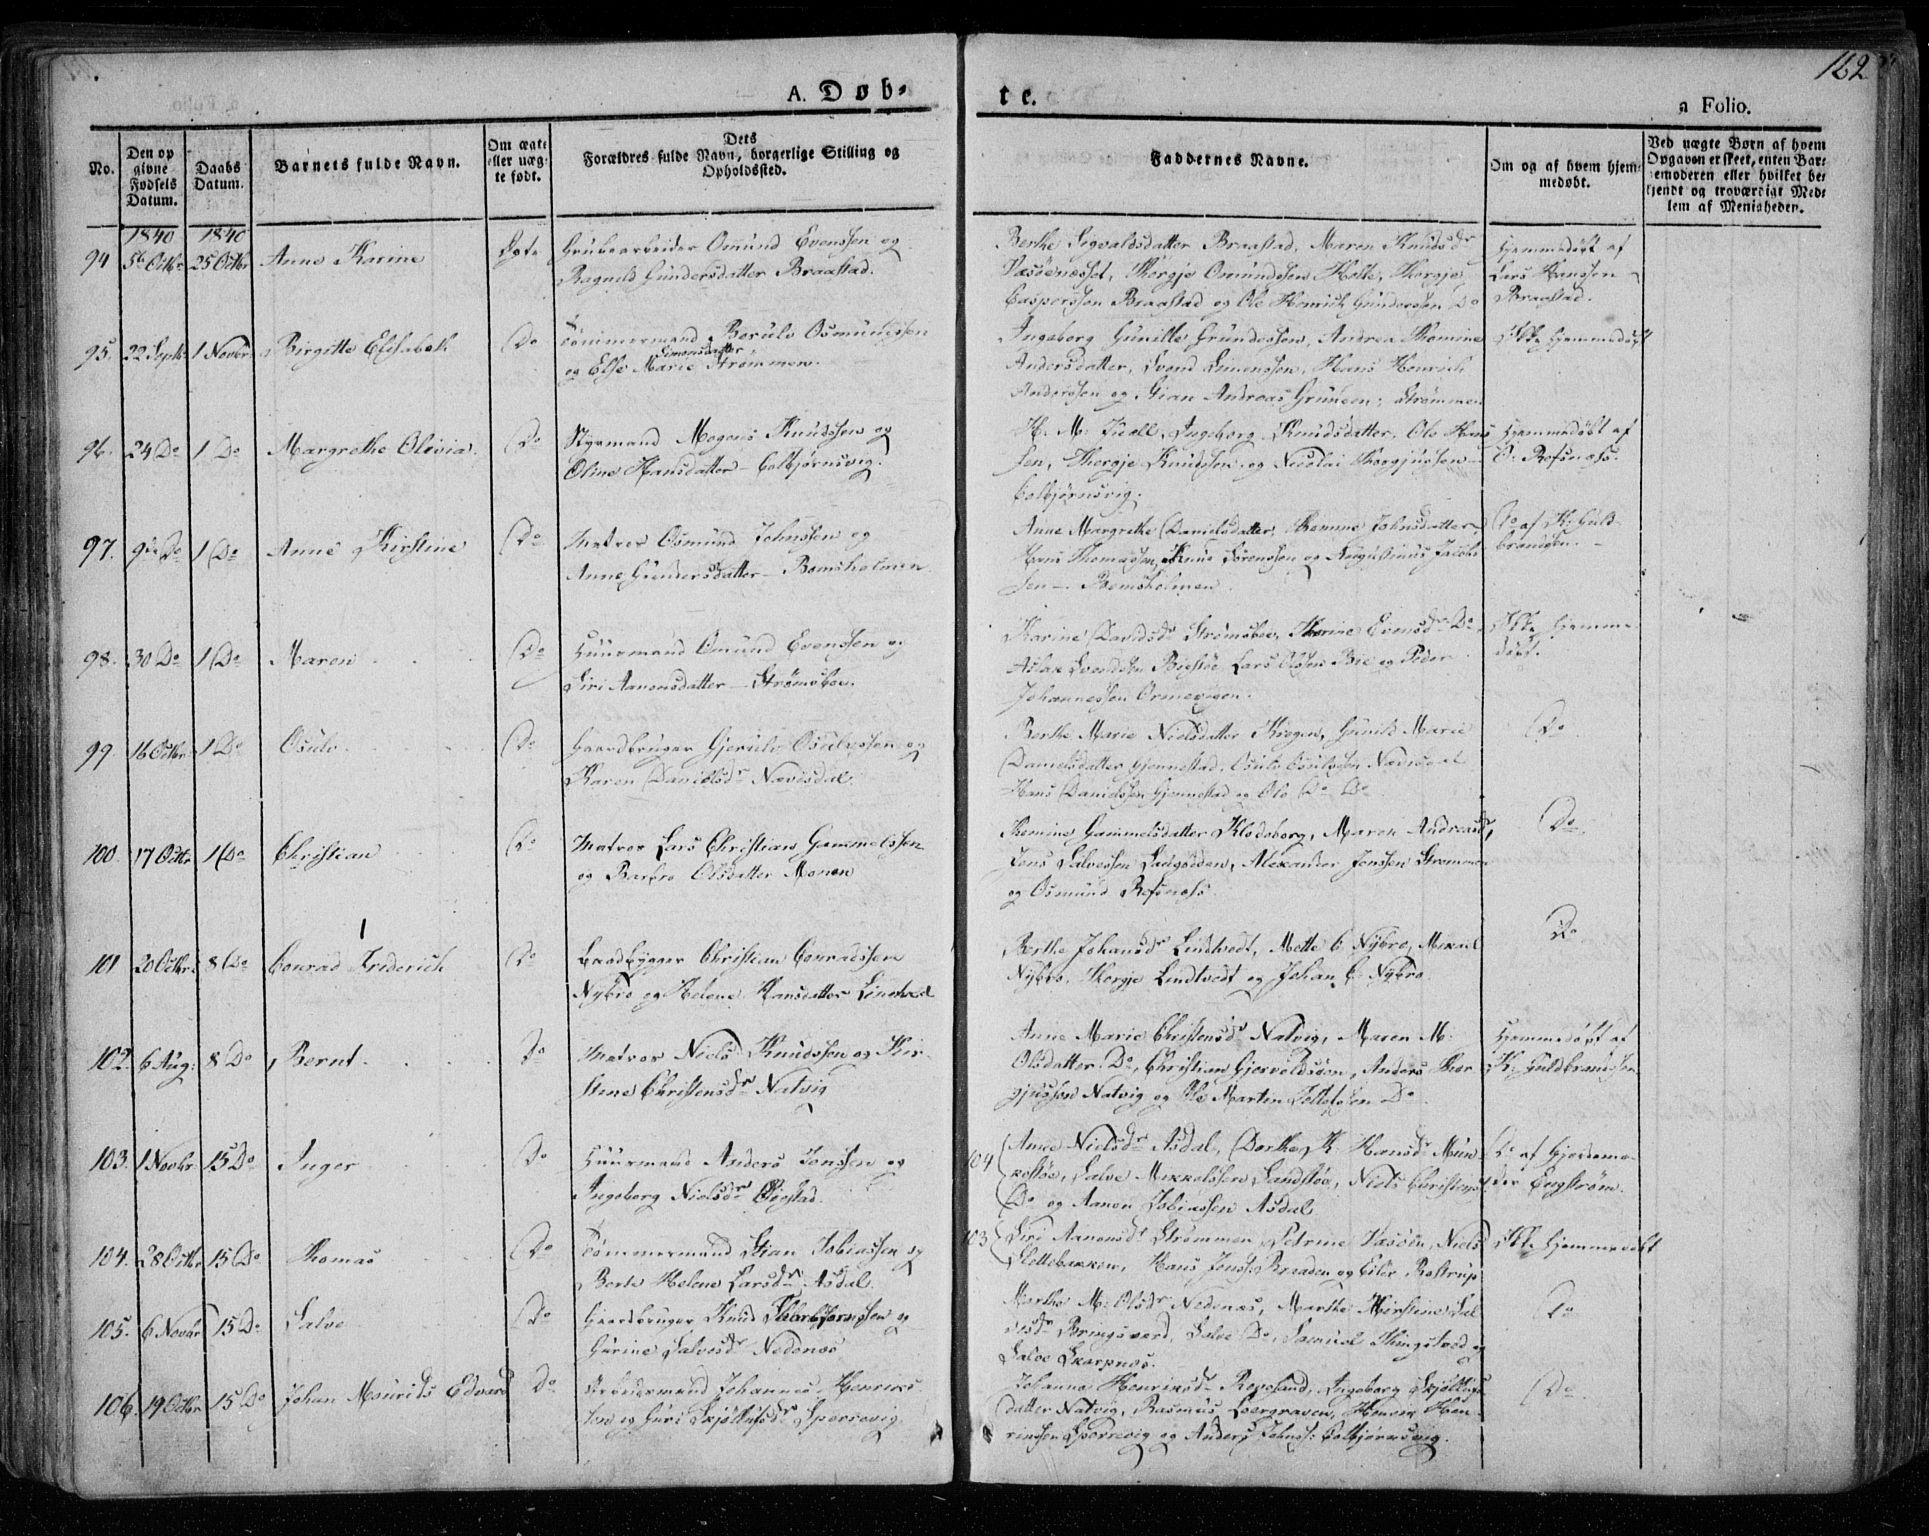 162
A. Døb-
te.
a Folio.
No.
Den op
givne
Fødsels
Datum.
Daabs
Datum.
Barnets fulde Navn.
Om ægte
eller uæg-
te født.
Dets
Forældres fulde Navn, borgerlige Stilling og
Opholdssted.
Faddernes Navne.
Om og af hvem hjem-
medøbt.
Ved uægte Børn af hvem
Opgaven er skeet, enten Bar-
nemoderen eller hvilket be-
kjendt og troværdigt Med-
lem af Menigheden.
1840 1840
94 5te Octbr 25 Octbr Anne Karine Ægte Grubearbeider Omund Evenssen og
Ragnild Gundersdatter Braastad.
Berthe Sigvaldsdatter Braastad, Maren Knudsdr
Væsøenesset, Thorgje Omundssen Holte, Thorgje
Casperssen Braastad og Ole Henrich Gunderssen Do
Hjemmedøbt af
Lars Hanssen
Braastad.
95. 22 Septbr 1 Novbr Birgitte Elisabeth Do Tømmermand Berulv Osmundssen
og Else Marie Simonsdatter Strømmen.
Ingeborg Gunille Grundessen, Andrea Thomine
Andersdatter, Svend Simonssen, Hans Henrich
Anderssen og Stian Andreas Grundesen, Strømmen
Ikke Hjemmedøbt
96. 24 Do 1 Do Margrethe Olivia. Do Styrmand Mogens Knudssen og
Oline Hansdatter - Colbjørnsvig.
H. M. Ingeborg Knudsdatter, Ole Hans
sen, Thorgje Knudssen og Nicolai Thorgjussen
Colbjørnsvig.
Hjemmedøbt af
O. Refsnæs.
97. 9de Do 1 Do Anne Kirstine Do Matros Osmund Johnssen og
Anne Gundersdatter - Bomsholmen
Anne Margrethe Danielsdatter, Johnsdatter,
Hans Thomassen, Knud Sørenssen og Augustinus Jacob
sen - Bomsholmen.
Do af K. Guld-
brandsen.
98. 30 Do 1 Do Maren Do Huusmand Omund Evenssen og
Siri Aanonsdatter - Strømsboe.
Karine Davidsdr Strømsboe, Thorine Evensdr Do
Aslak Svendsen Biestøe, Lars Olssen Bie og Peder
Johannessen Ormevigen.
Ikke Hjemme-
døbt.
99. 16 Octbr 1 Do Osulv Do Gaardbruger Gjerulv Osulvssen og
Karen Danielsdr Nævisdal.
Berthe Marie Nielsdatter Krogen, Gunild Marie
Danielsdatter Gjennestad, Osulv Osulvssen Nævisdal
Hans Danielssen Gjennestad og Ole Do Do
Do
100. 17 Octbr 1 Do Christian Do Matros Lars Christian Gammelssen
og Barbro Olsdatter Monen
Themine Gammelsdatter Klodeborg, Maren Andreasdr,
Jens Salvessen Langsæden, Alexander Jenssen Strømmen
og Osmund Refsnæs.
Do
101 20 Octbr 8 Do Conrad Frederich Do Baadbygger Christian Conradssen
Nybro og Helene Hansdatter Lindtved
Berthe Johansdr Lindtvedt, Mette C. Nybro, Mikael
Nybro, Thorgje Lindtvedt og Johan C. Nybro.
Do
102. 6 Aug: 8 Do Bernt Do Matros Niels Knudssen og Kir-
stine Christensdr Natvig
Anne Marie Christensdr Natvig, Maren M.
Olsdatter Do, Christian Gjeruldssøn, Anders Thor
gjussen Natvig og Ole Martin Do
Hjemmedøbt af
K. Guldbrandsen
103. 1 Novbr. 15 Do Inger Do Huusmand Anders Jenssen og
Ingeborg Nielsdr Øiestad.
104 Anne Nielsdr Asdal, Dorthe K. Hansdr Mun
kestøe, Salve Mikkelssen Sandstøe, Niels Christenss.
Do og Aanon Tobiassen Asdal.
Do af Gjordemo-
der Engstrøm.
104. 28 Octbr 15 Do Thomas Do Tømmermand Stian Tobiassen og
Berte Helene Larsdr Asdal
103 Siri Aanonsdr Strømmen, Petrine Væsøen, Niels
Slettebakken, Hans Jenss: Braaden og Eiler Rostrup.
Ikke Hjemmedøbt
105. 6 Novbr 15 Do Salve Do Gaardbruger Knud og
Gurine Salvesdr Nedenæs
Marthe M. Olsdr Nedenæs, Marthe Kirstine Sal
vesdr Bringsværd, Salve Do, Samuel Thingstved og
Salve Skarpnæs.
Do
106. 19 Octbr 15 Do Johan Mourids Edvard Do Arbeidsmand Johannes Henriks
sen og Guri Skjøttelsdr Sperrevig
Johanne Henriksdr Repeland, Ingeborg Skjøttels
datter Natvig, Rasmus Løvgraven, Henrik Hen
rikssen Sperrevig og Anders Johnss: Colbjørnsvig.
Do